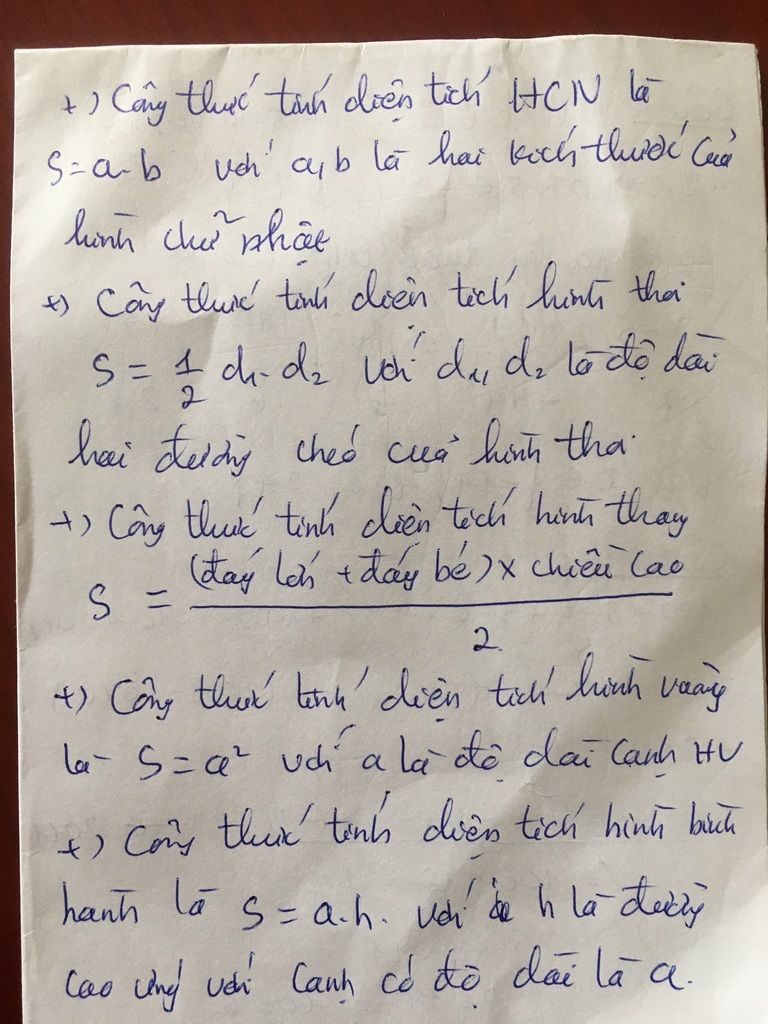 +) Công thức tính diện tích HCN là
S = a.b với a,b là hai kích thước của
hình chữ nhật
+) Công thức tính diện tích hình thoi
S = 1/2 d1.d2 với d1, d2 là độ dài
hai đường chéo của hình thoi.
+) Công thức tính diện tích hình thang
S = (đáy lớn + đáy bé) x chiều cao / 2
+) Công thức tính diện tích hình vuông
là S = a² với a là độ dài cạnh HV
+) Công thức tính diện tích hình bình
hành là S = a.h. với h là đường
cao ứng với cạnh có độ dài là a.